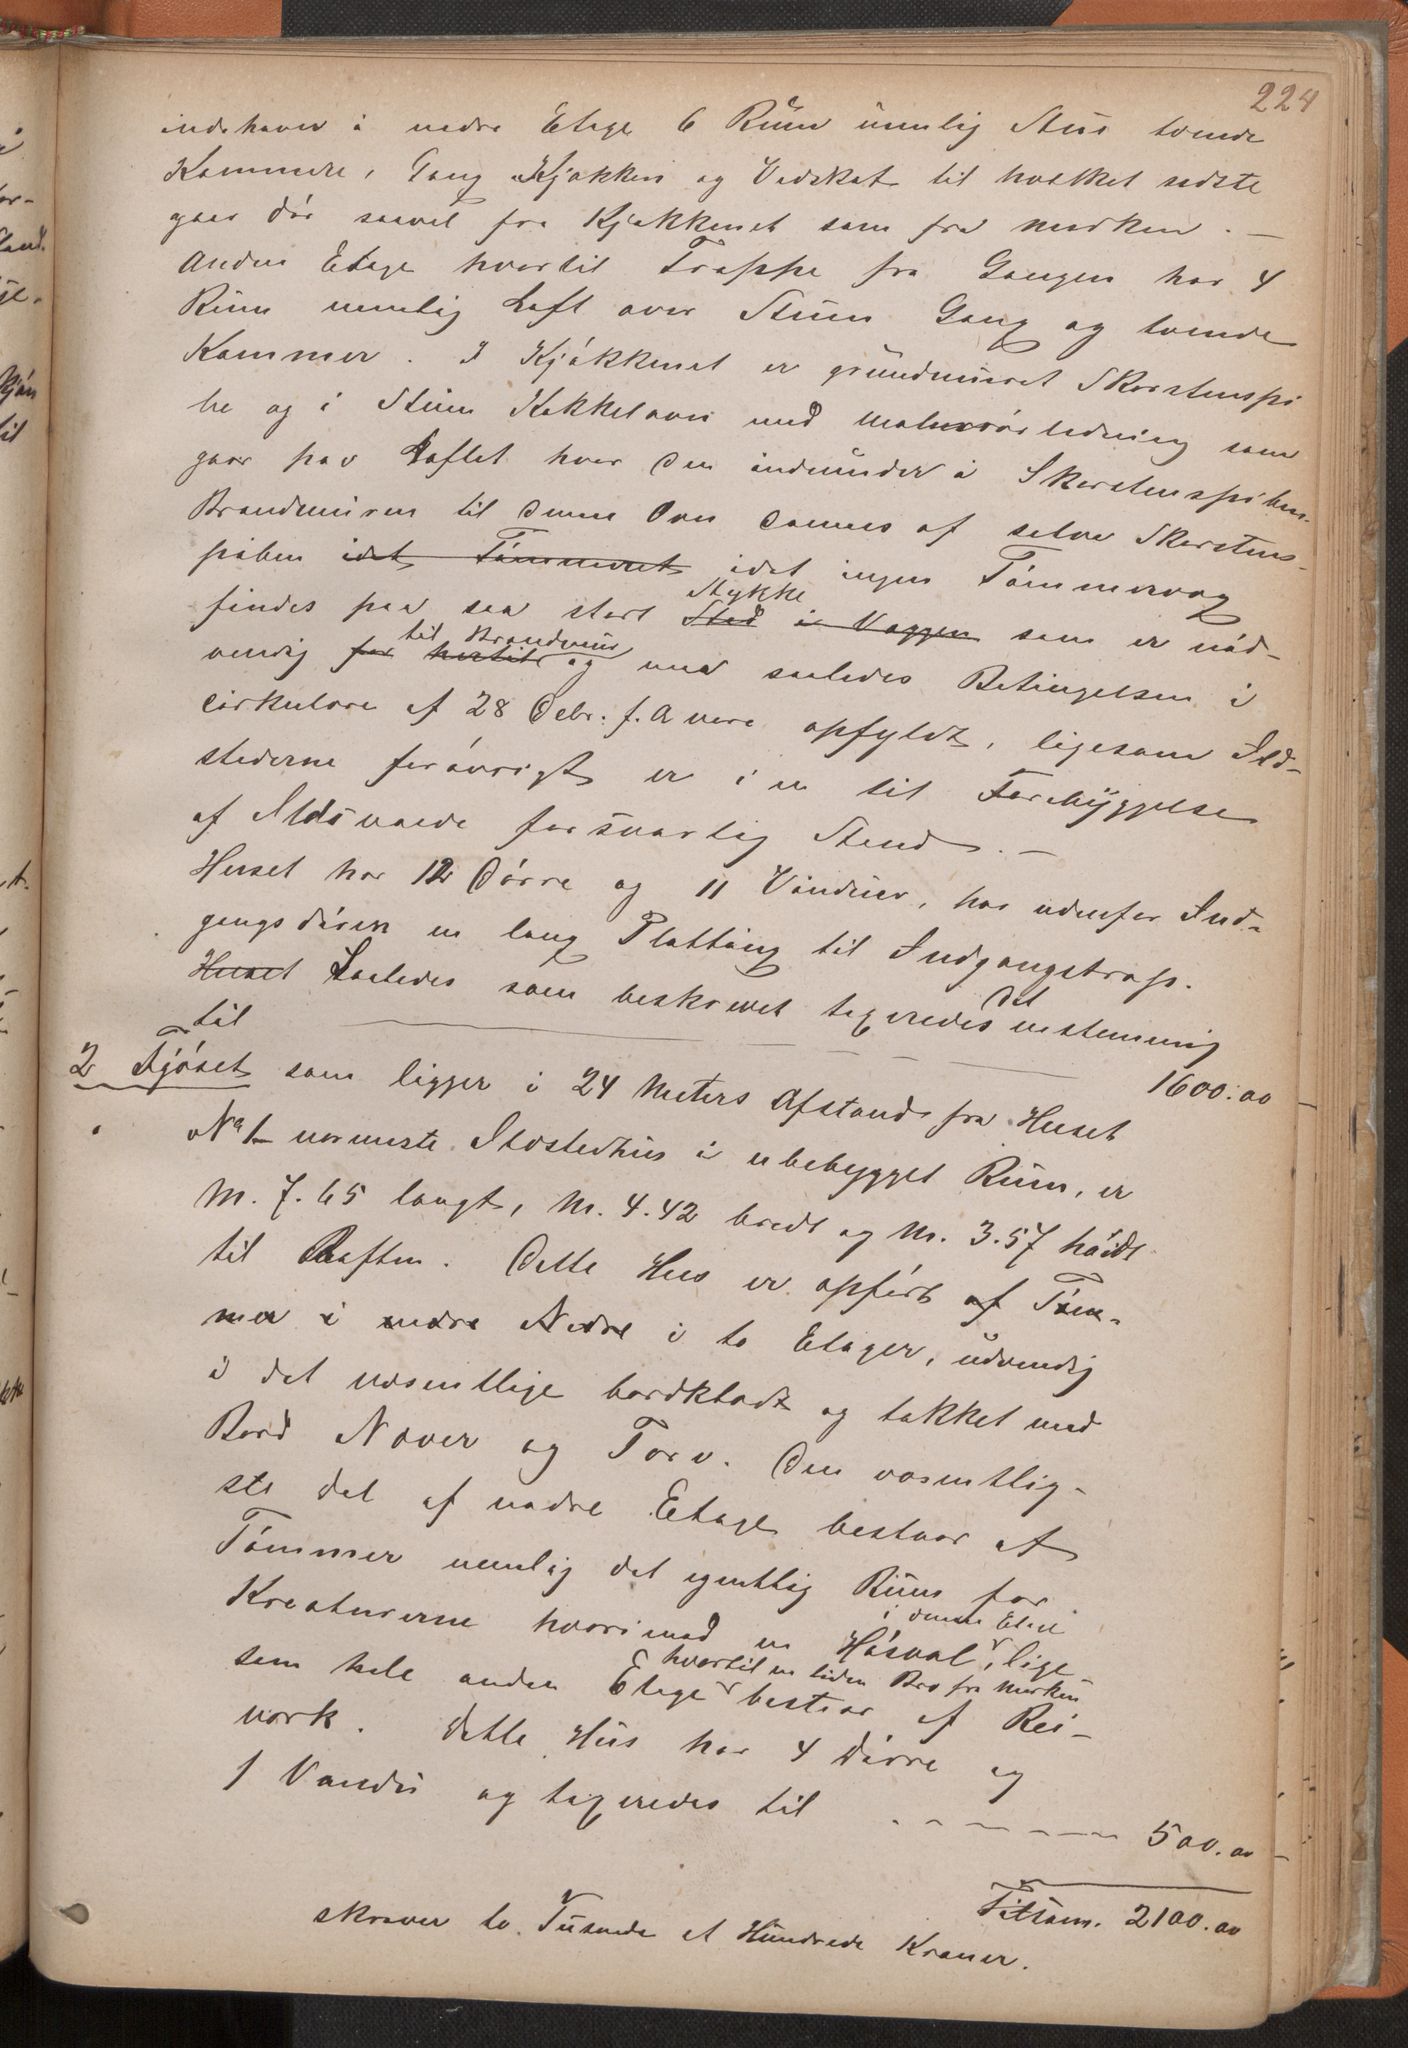 224
indehaver i nedre Etage 6 Rum nemlig Stue tvende
Kammere, Gang Kjøkken og Vedskot til hvilket sidste
gaar Dør saavel fra Kjøkkenet som fra marken. —
Anden Etage hvortil Trappe fra Gangen har 4
Rum nemlig Loft over Stuen Gang og tvende
Kammer. I Kjøkkenet er grundmuret Skorstenspi
be og i Stuen Kakkelovn med rørledning som
gaar paa Loftet hvor den indmunder i Skorstenspiben.
Brandmuren til denne Ovn dannes af selve Skorstens-
piben idet Tømmeret idet ingen Tømmervæg
findes paa saa stort Sted i Væggen Stykke som er nød-
vendig for hertil til Brandmur og maa saaledes Betingelsen i
Cirkulære af 28 Debr. f. A være opfyldt, ligesom Ild-
stederne forøvrigt er i en til Forebyggelse
af Ildsvaade forsvarlig Stand. —
Huset har 12 Dørre og 11 Vinduer, har udenfor Ind-
gangsdøren en lang Platting til Indgangstrap.
Huset Saaledes som beskrevet taxeredes det enstemmig
til — 1600:00
2 Fjøset som ligger i 24 Meters Afstand fra Huset
No 1 nærmeste Ildstedhus i ubebygget Rum, er
M. 7.65 langt, M. 4.42 bredt og M. 3.57 høidt
til Raften. Dette Hus er opført af Tøm-
mer i nedre Nedre i to Etager, udvendig
i det væsentlige bordklædt og tækket med
Bord Næver og Torv. Den væsentlig-
ste del af nedre Etage bestaar af
Tømmer nemlig det egentlig Rum for
Kreaturerne hvorimod en Høsval i denne Etage, lige-
som hele anden Etage hvortil en liden Bro fra Marken bestaar af Rei-
værk. Dette Hus har 4 Dørre og
1 Vindu og taxeredes til — 500.00
Tilsam. 2100.00
skriver to Tusende et Hundrede Kroner.